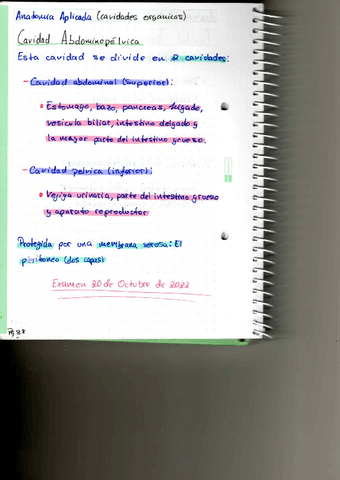 Anatomía Aplicada (cavidades organicas)
Cavidad Abdominopélvica
Esta cavidad se divide en 2 cavidades:
- Cavidad abdominal (superior):
Estomago, bazo, pancreas, higado,
vesicula biliar, intestino delgado y
la mayor parte del intestino grueso.
- Cavidad pelvica (inferior):
Vejiga urinaria, parte del intestino grueso
y aparato reproductor
Protegida por una membrana serosa: El
peritoneo (dos capas)
Examen 20 de Octubre de 2022